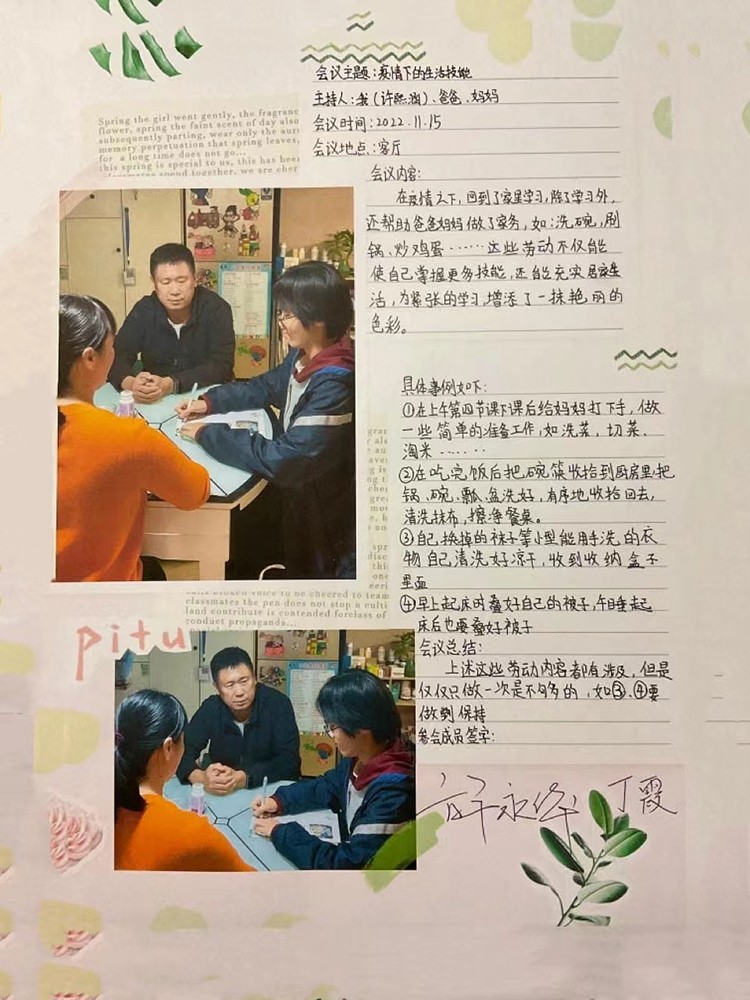 会议主题:疫情下的生活技能
主持人:我(许熙润)、爸爸、妈妈
会议时间:2022.11.15
会议地点:客厅
会议内容:
在疫情之下,回到了家里学习,除了学习外,
还帮助爸爸妈妈做了家务,如:洗碗,刷
锅、炒鸡蛋……这些劳动不仅能
使自己掌握更多技能,还能充实居家生
活,为紧张的学习,增添了一抹艳丽的
色彩。
Spring the girl went gently, the fragranc
flower, spring the faint scent of day also
subsequently parting, wear only the aur
memory perpetuation that spring leaves,
for a long time does not go...
this spring is special to us, this has been
spend together, we are cher
具体事例如下:
①在上午第四节课下课后给妈妈打下手,做
一些简单的准备工作,如洗菜,切菜、
淘米……
②在吃完饭后把碗筷收拾到厨房里,把
锅、碗、瓢、盆洗好,有序地收拾回去,
清洗抹布,擦净餐桌。
③自己换掉的袜子等小型能用手洗的衣
物自己清洗好凉干,收到收纳盒不
里面
④早上起床时叠好自己的被子,午睡起
床后也要叠好被子
会议总结:
上述这些劳动内容都有涉及,但是
仅仅只做一次是不够的,如③、④要
做到保持
参会成员签字:
许永华 丁霞
voice to be cheered to team
classmates the pen does not stop a culti
land contribute is contended forclass of
conduct propaganda...
pitu